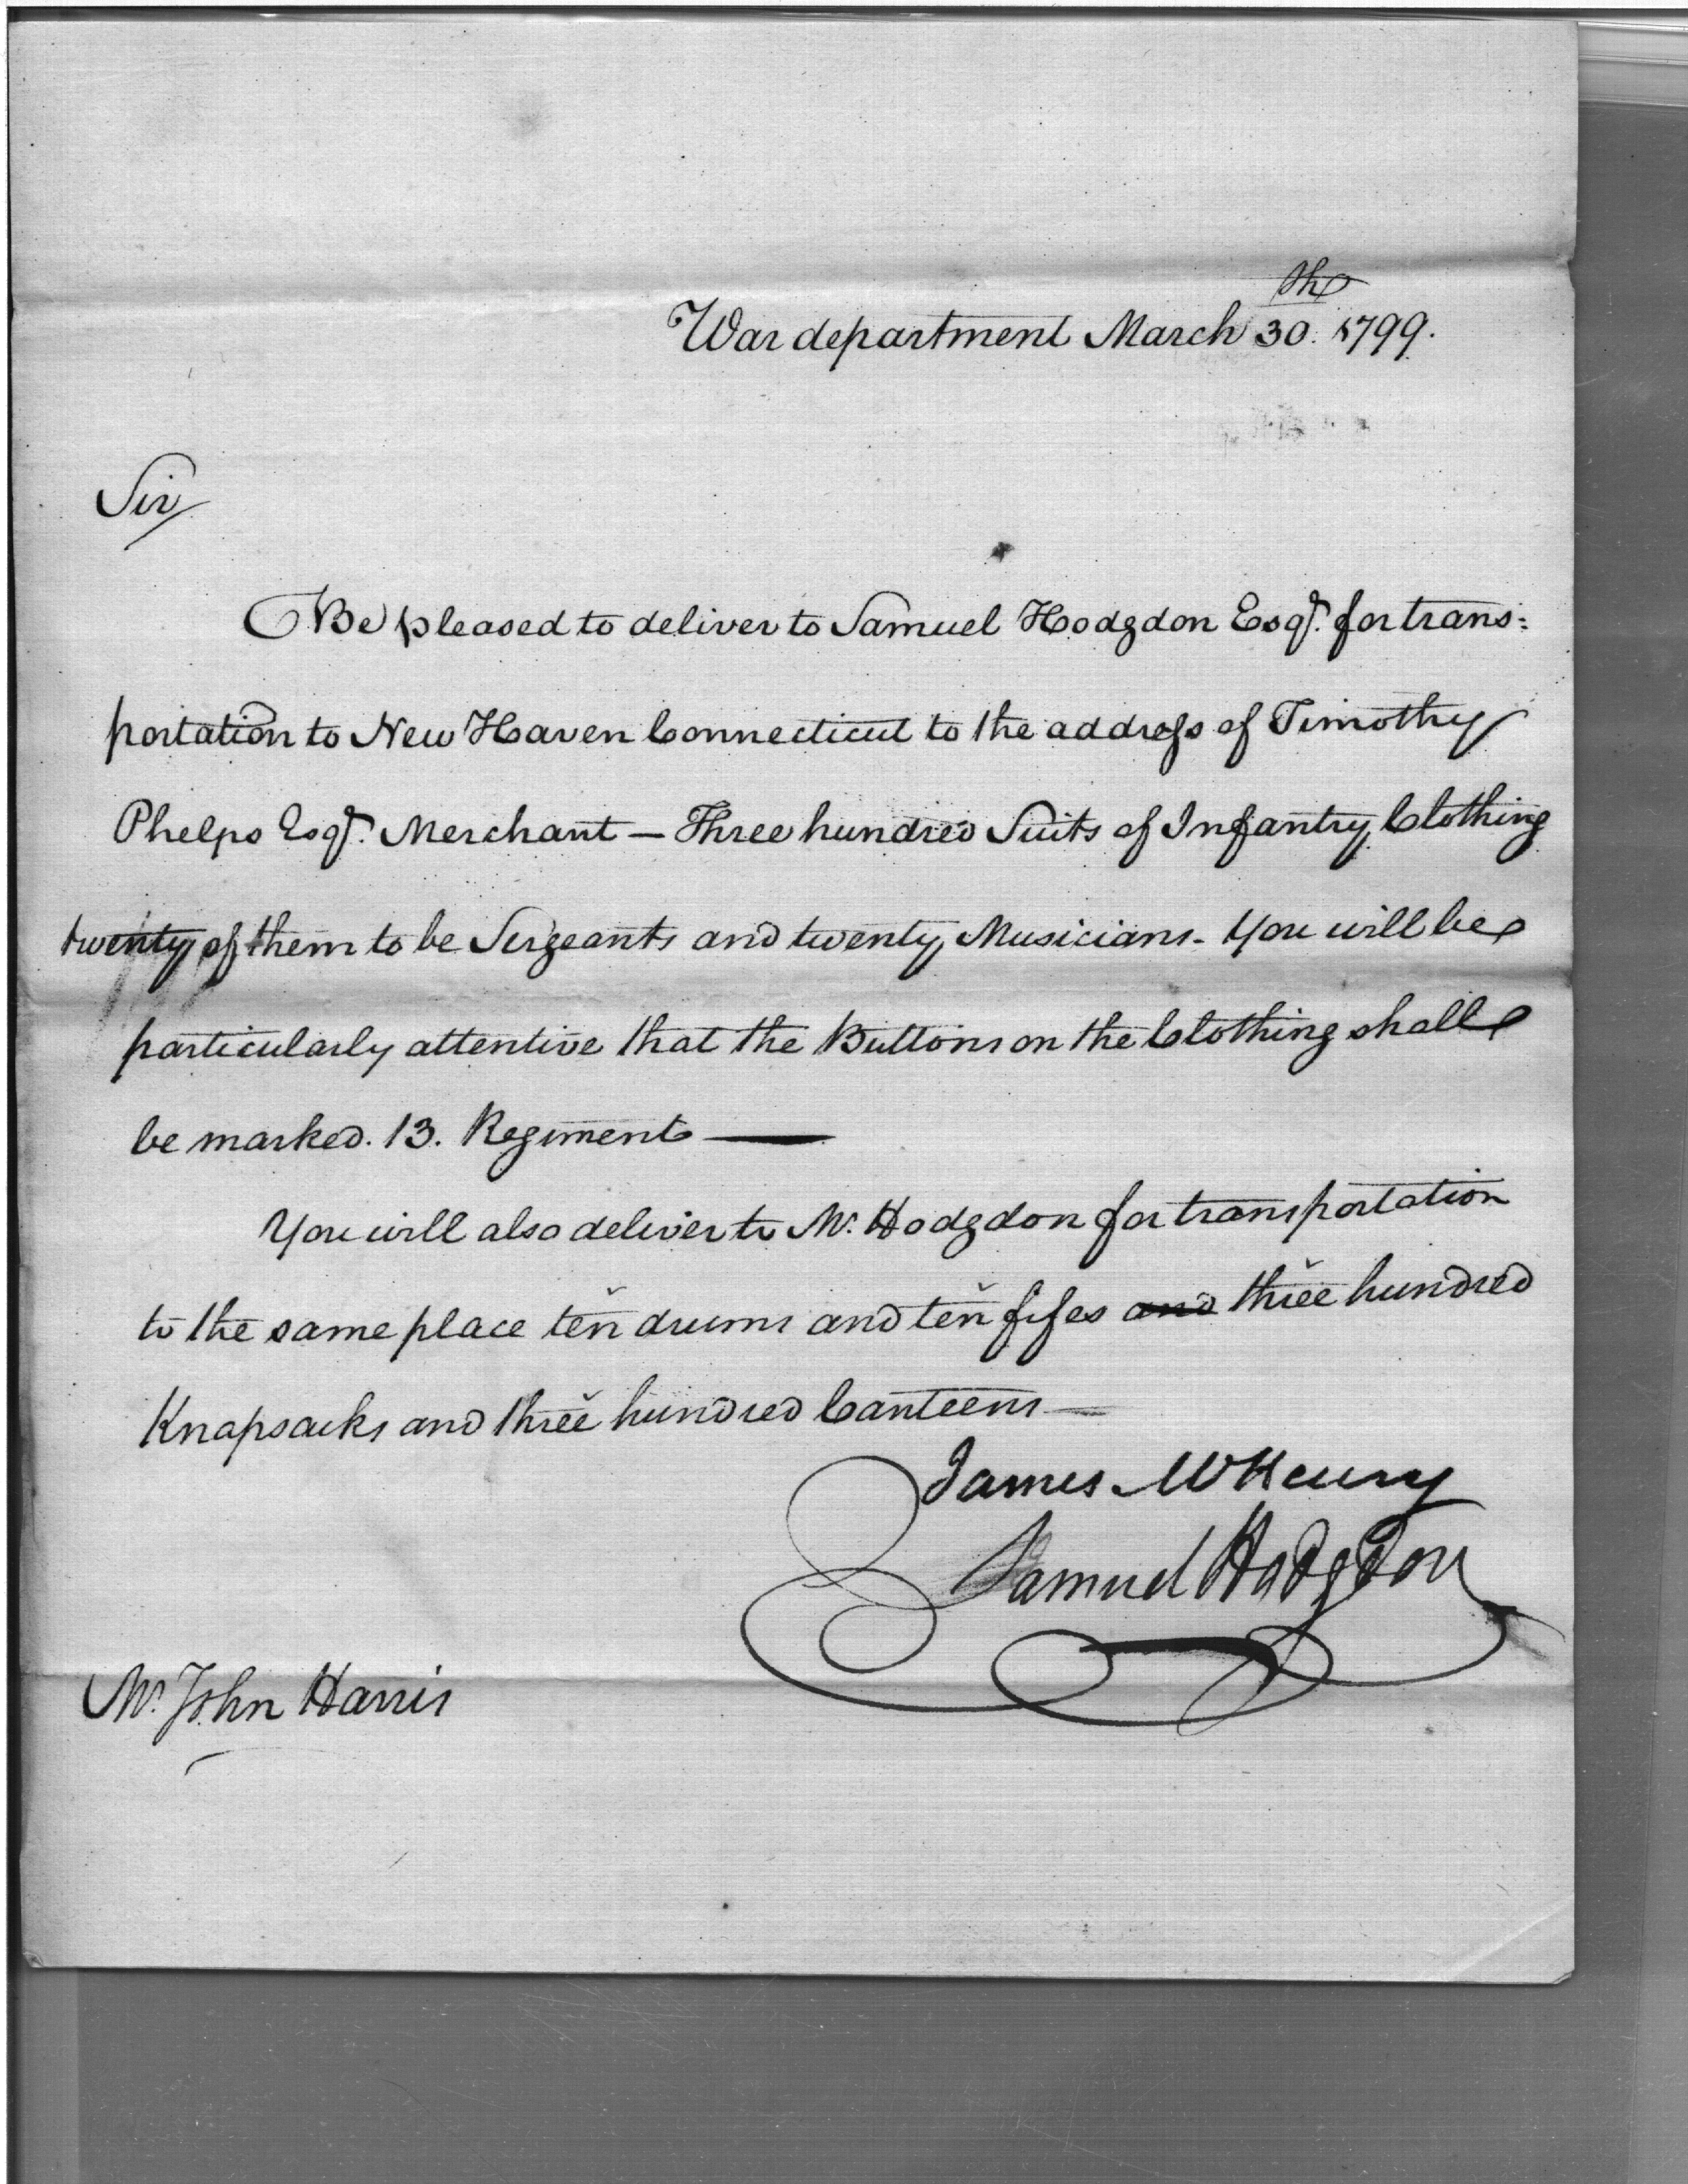 War department March 30th. 1799.
Sir
Be pleased to deliver to Samuel Hodgdon Esqr. for trans=
portation to New Haven Connecticut to the address of Timothy
Phelps Esqr. Merchant — Three hundred Suits of Infantry Clothing
twenty of them to be Sergeants and twenty Musicians. You will be
particularly attentive that the Buttons on the Clothing shall
be marked. 13. Regiment —
You will also deliver to Mr. Hodgdon for transportation
to the same place ten drums and ten fifes and three hundred
Knapsacks and three hundred Canteens —
James McHenry
Samuel Hodgdon
Mr. John Harris